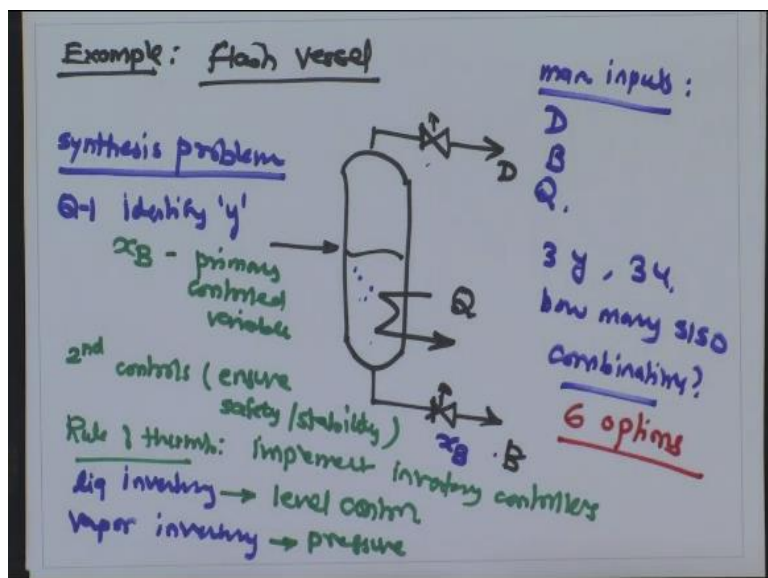 Example: flash vessel
synthesis problem
Q-1 identify 'y'
xB - primary
controlled
variable
2nd controls (ensure
safety/stability)
Rule of thumb: implement inventory controllers
liq inventory → level control
vapor inventory → pressure
D
Q
xB . B
man inputs:
D
B
Q.
3 y, 3 u.
how many SISO
combinations?
6 options